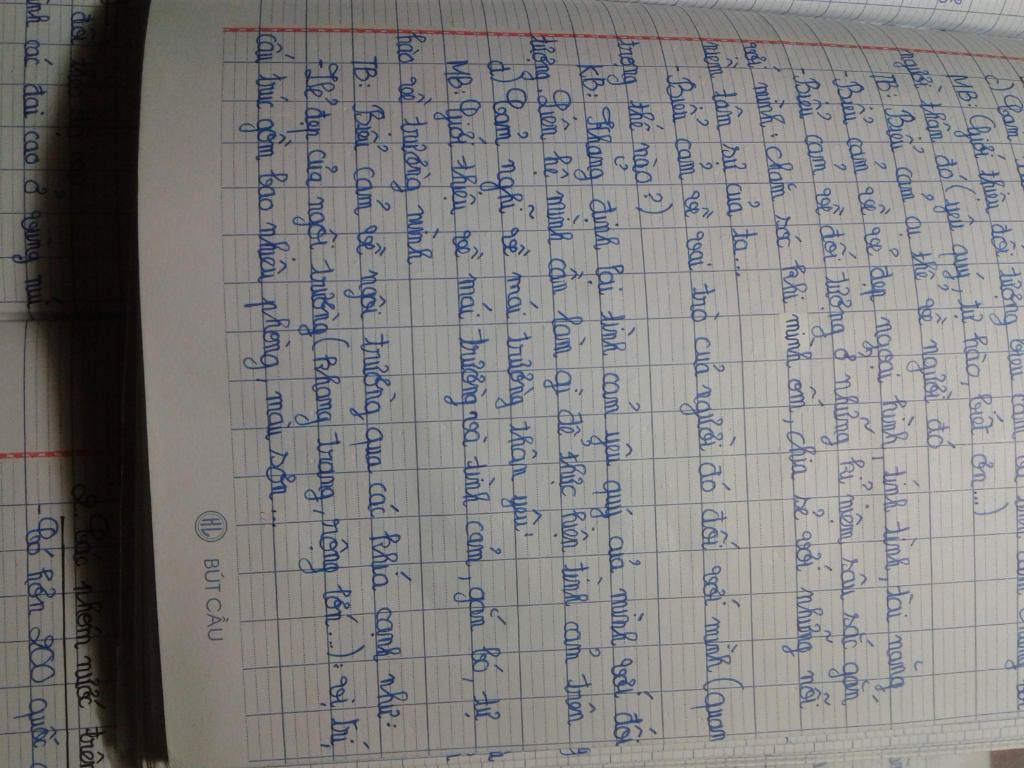 c) Cảm
MB: Giới thiệu đối tượng
người thân đó (yêu quý, tự hào, biết ơn...)
TB: Biểu cảm cụ thể về người đó
- Biểu cảm về vẻ đẹp ngoại hình, tính tình, tài năng
- Biểu cảm về đối tượng ở những kỉ niệm sâu sắc gắn
với mình: chăm sóc khi mình ốm, chia sẻ với những nỗi
niềm tâm sự của ta...
- Biểu cảm về vai trò của người đó đối với mình (quan
trọng thế nào?)
KB: Khẳng định lại tình cảm yêu quý của mình với đối
tượng. Liên hệ mình cần làm gì để thực hiện tình cảm trên
d) Cảm nghĩ về mái trường thân yêu
MB: Giới thiệu về mái trường và tình cảm, gắn bó, tự
hào về trường mình
TB: Biểu cảm về ngôi trường qua các khía cạnh như:
- Vẻ đẹp của ngôi trường (khang trang, rộng lớn...): vị trí,
cấu trúc gồm bao nhiêu phòng, màu sơn...
HL BÚT CẦU
các đai cao ở vùng núi
2. Các nhóm nước trên
- Có hơn 200 quốc